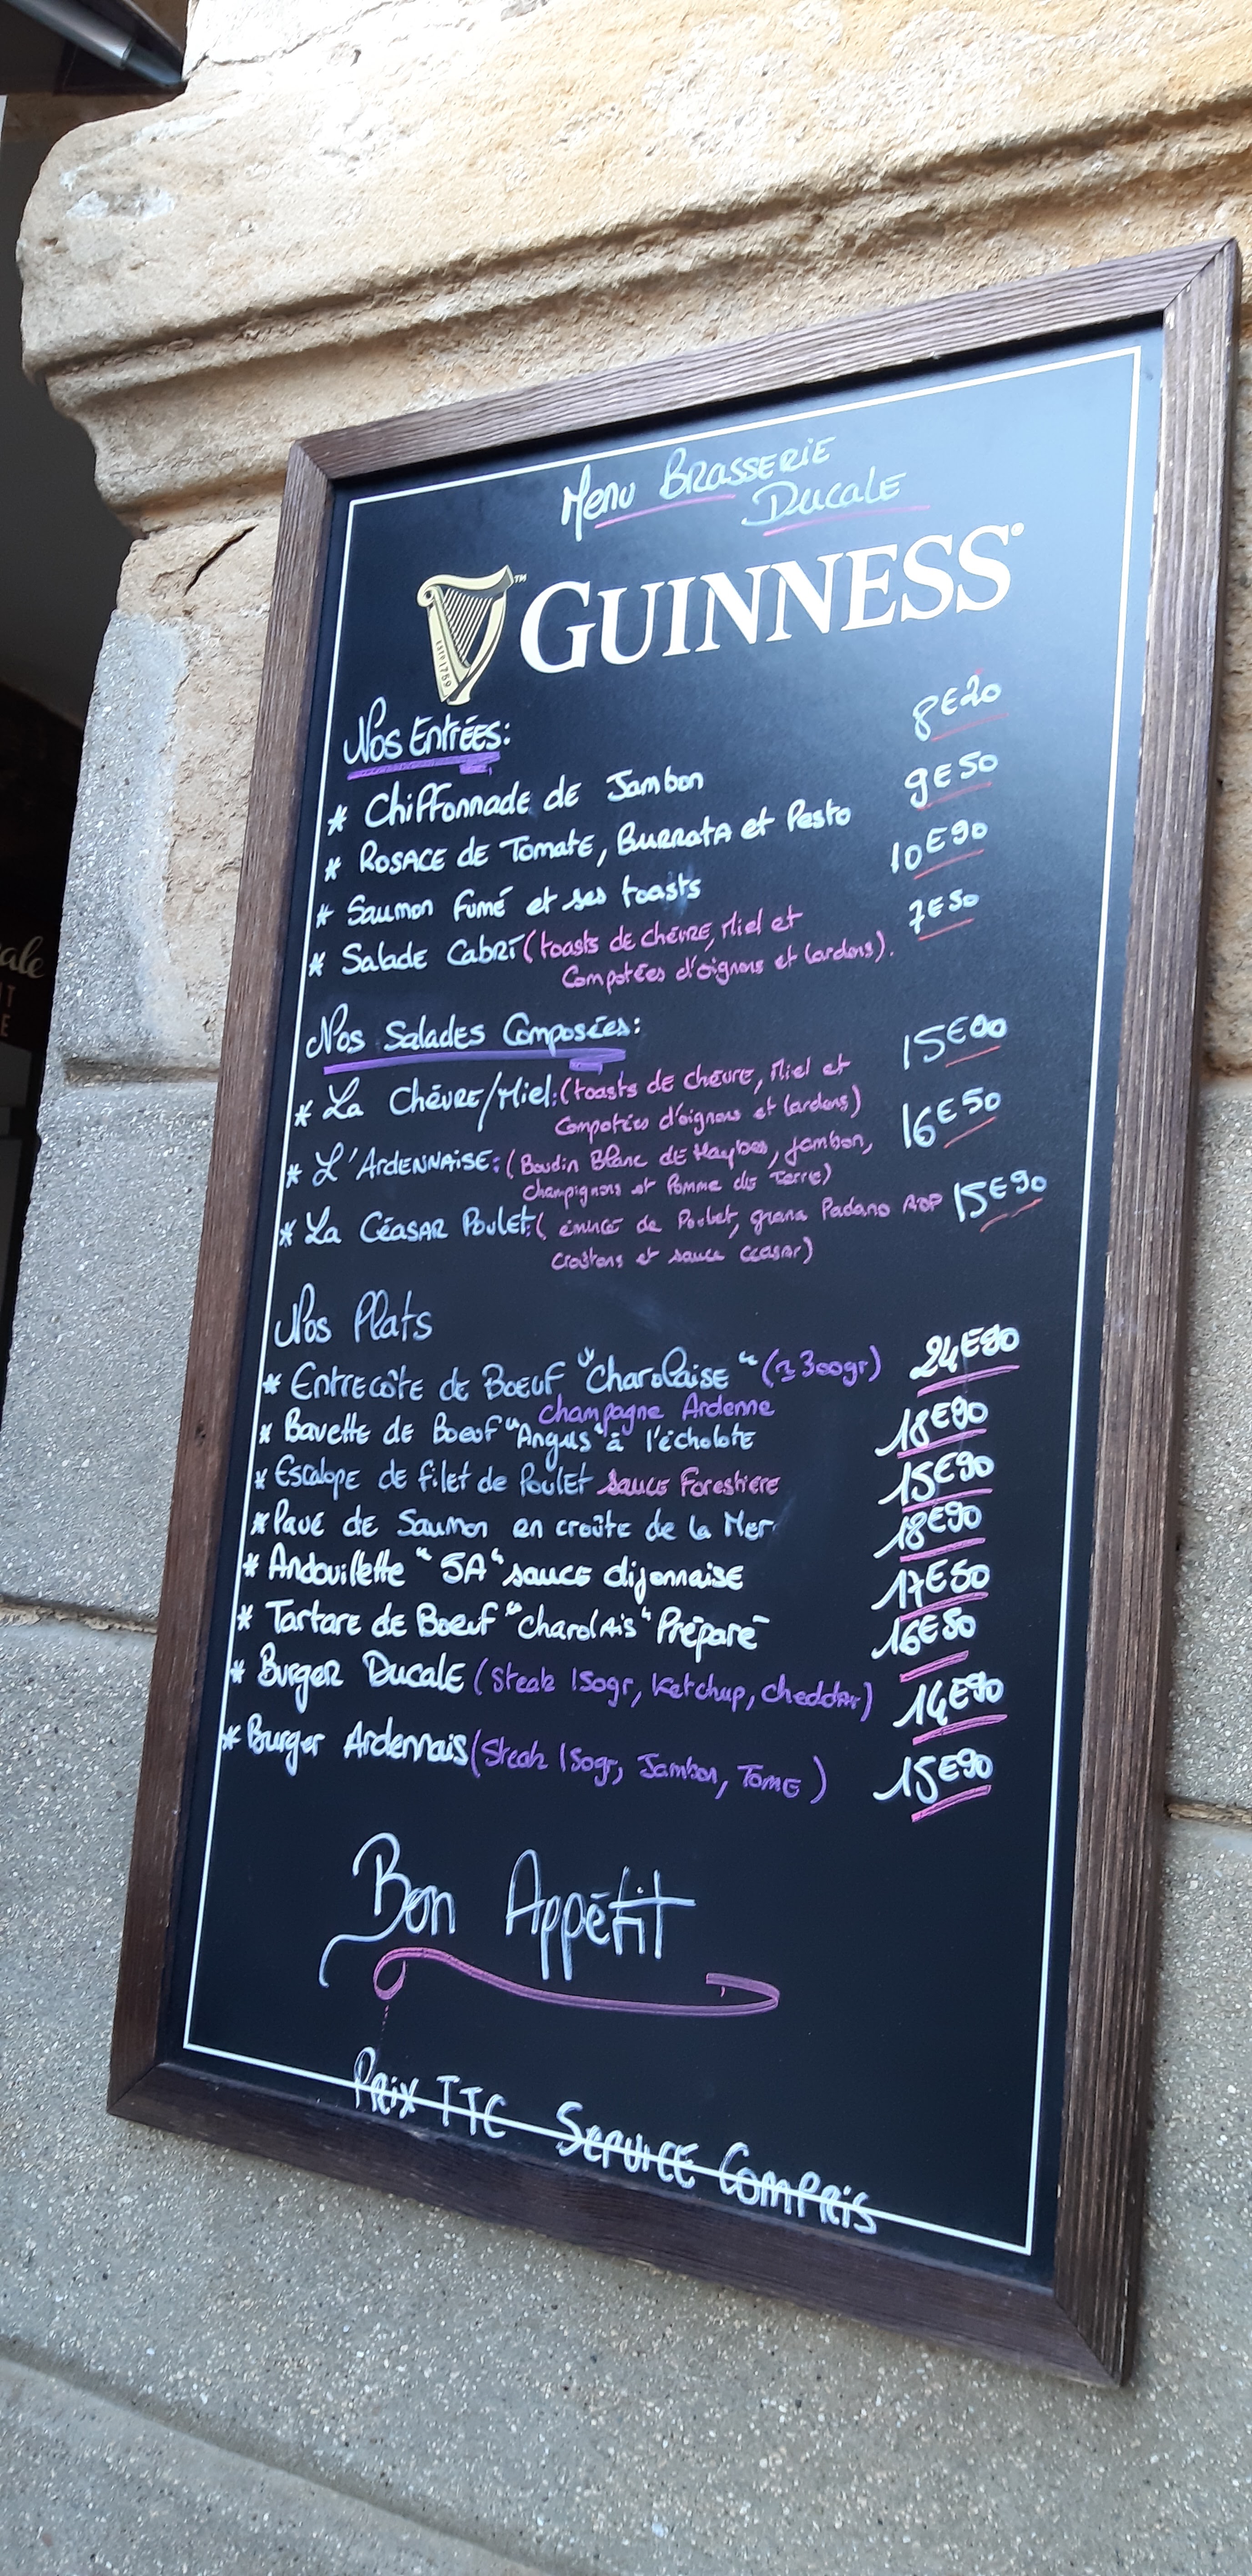 Menu Brasserie
Ducale
GUINNESS
ESTD 1759
Nos Entrées:
* Chiffonnade de Jambon 8E20
* Rosace de Tomate, Burrata et Pesto 9E50
* Saumon Fumé et ses toasts 10E90
* Salade Cabri (toasts de chèvre, Miel et 7E50
Compotées d'oignons et lardons).
Nos Salades Composées:
* La Chèvre/Miel: (toasts de chèvre, Miel et 15E00
Compotées d'oignons et lardons)
* L'Ardennaise: (Boudin Blanc de Haybes, jambon, 16E50
champignons et Pomme de Terre)
* La Céasar Poulet: (émincé de Poulet, grana Padano AOP 15E90
Croûtons et sauce ceasar)
Nos Plats
* Entrecôte de Boeuf "Charolaise" (± 300gr) 24E90
Champagne Ardenne
* Bavette de Boeuf "Angus" à l'écholote 18E90
* Escalope de filet de Poulet sauce Forestière 15E90
* Pavé de Saumon en croûte de la Mer 18E90
* Andouillette "5A" sauce dijonnaise 17E50
* Tartare de Boeuf "charolais" Préparé 16E50
* Burger Ducale (Steak 150gr, Ketchup, cheddar) 14E90
* Burger Ardennais (Steak 150gr, Jambon, Tome) 15E90
Bon Appétit
Prix TTC Service Compris